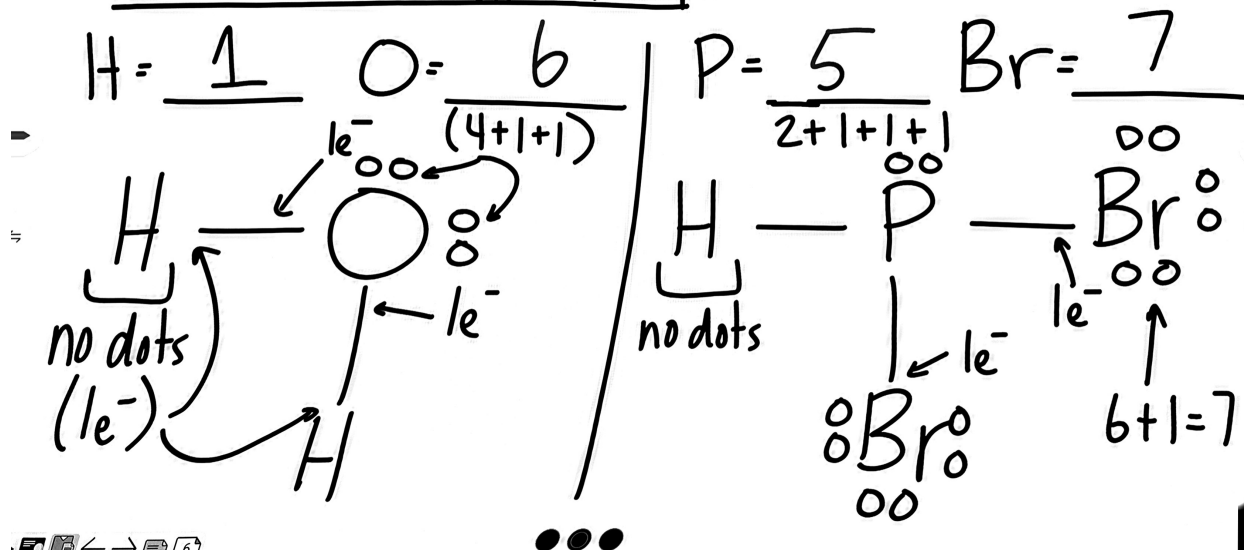 H = 1 O = 6
(4+1+1)
1e⁻
H — O
1e⁻
no dots
(1e⁻)
H
P = 5 Br = 7
2+1+1+1
H — P — Br
1e⁻
no dots
1e⁻
Br
6+1=7